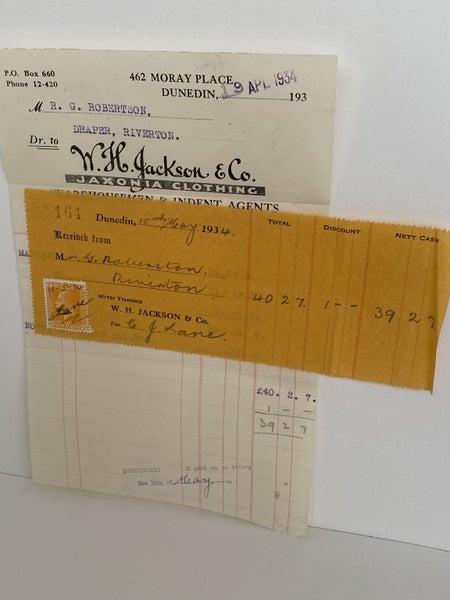 P.O. Box 660
Phone 12-420
462 MORAY PLACE,
DUNEDIN, 19 APL 1934 193
M R. G. ROBERTSON,
DRAPER, RIVERTON.
Dr. to
W.H. Jackson & Co.
JAXONIA CLOTHING
WAREHOUSEMEN & INDENT AGENTS
164
Dunedin, 15th May 1934.
TOTAL DISCOUNT NETT CASH
Received from
Mr. G. Robertson.
Riverton.
40 2 7. 1 - - 39 2 7
WITH THANKS
W. H. JACKSON & Co.
Per C. J. Lane.
Lane
NO
£40. 2. 7.
1 - -
39 2 7
DISCOUNT: if paid on or before
the 20th of May